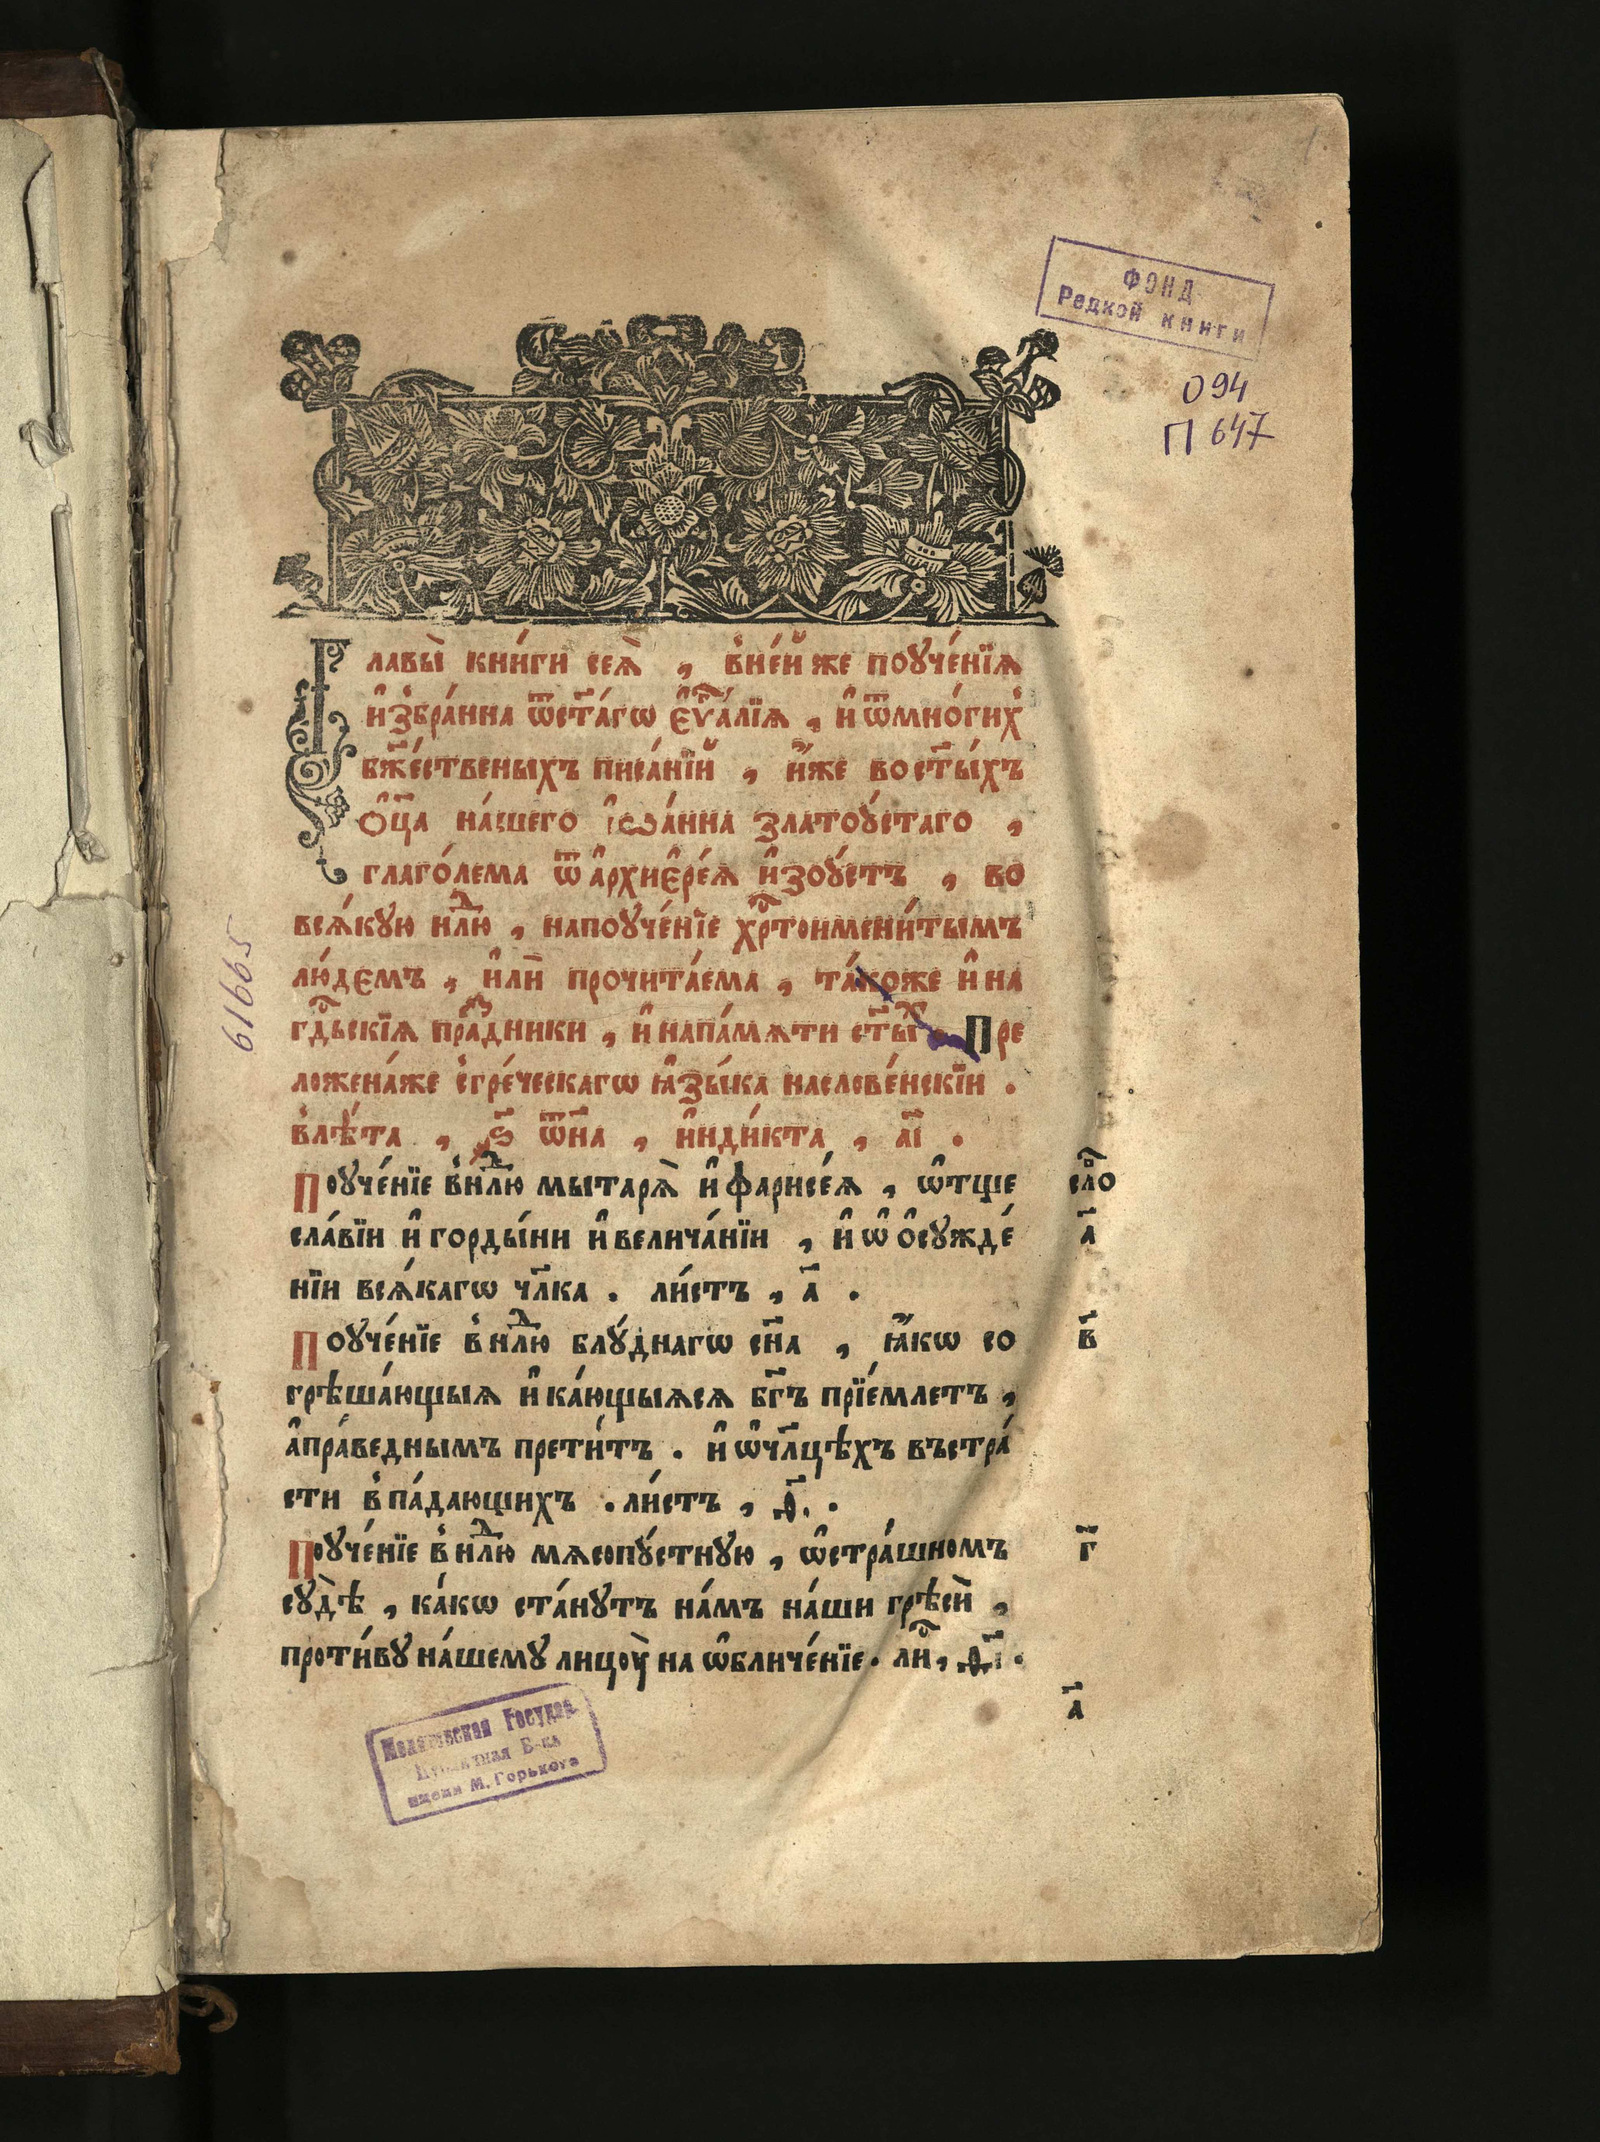 ФОНД
Редкой книги
094
П 647
Главы̀ кни́ги сея̀ , в̾не́й же поꙋче́нїѧ
и҆збра́нна ѿст҃а́гѡ є҆ѵⷢ҇а́лїѧ , и҆ ѿмно́гих̾
бж҃е́ственыхъ писа́нїй , и҆́же во ст҃ы́хъ
ѻ҆ц҃а на́шего і҆ѡа́нна златоꙋ́стаго ,
глаго́лема ѿ а҆рхиє҆ре́ѧ и҆зоꙋ́стъ , во
всѧ́кую нлⷣю , напоꙋче́нїе хрⷭ҇тоимени́тымъ
лю́демъ , и҆лѝ прочита́ема , та́коже и҆ на
гдⷭ҇ьскїѧ праⷥдники , и҆ напа́мѧти ст҃ыⷯ . Пре
ложена́же с̾гре́ческагѡ ꙗ҆зы́ка насловѐнскїи .
в̾лѣ́та , ҂ѕ҃ ѿн҃а , и҆нди́кта , а҃і .
Поꙋче́нїе в̾нлⷣю мытарѧ̀ и҆ фарисе́ѧ , ѡ҆тще
сла́вїи и҆ горды́ни и҆ велича́нїи , и҆ ѡ҆ ѻ҆сꙋжде́
нїи всѧ́кагѡ чл҃ка . ли́стъ , а҃ .
сло
а҃
Поꙋче́нїе в̾ нлⷣю блꙋ́днагѡ сн҃а , ꙗ҆́кѡ со
грѣша́ющыѧ и҆ ка́ющыѧсѧ бг҃ъ прїе́млетъ ,
а҆пра́веднымъ прети́тъ . и҆ ѡ҆чл҃цѣхъ въстра́
сти в̾па́дающихъ . ли́стъ , д҃ .
в҃
Поꙋче́нїе в̾ нлⷣю мѧсопꙋ́стную , ѡ҆стра́шномъ
сꙋдѣ̀ , ка́кѡ ста́нꙋтъ на́мъ на́ши грѣсѝ ,
проти́вꙋ на́шемꙋ лицоꙋ̀ на ѡ҆бличе́нїе . лиⷭ҇ , д҃і .
г҃
а҃
61665
Государ.
Б-ка
имени М. Горького